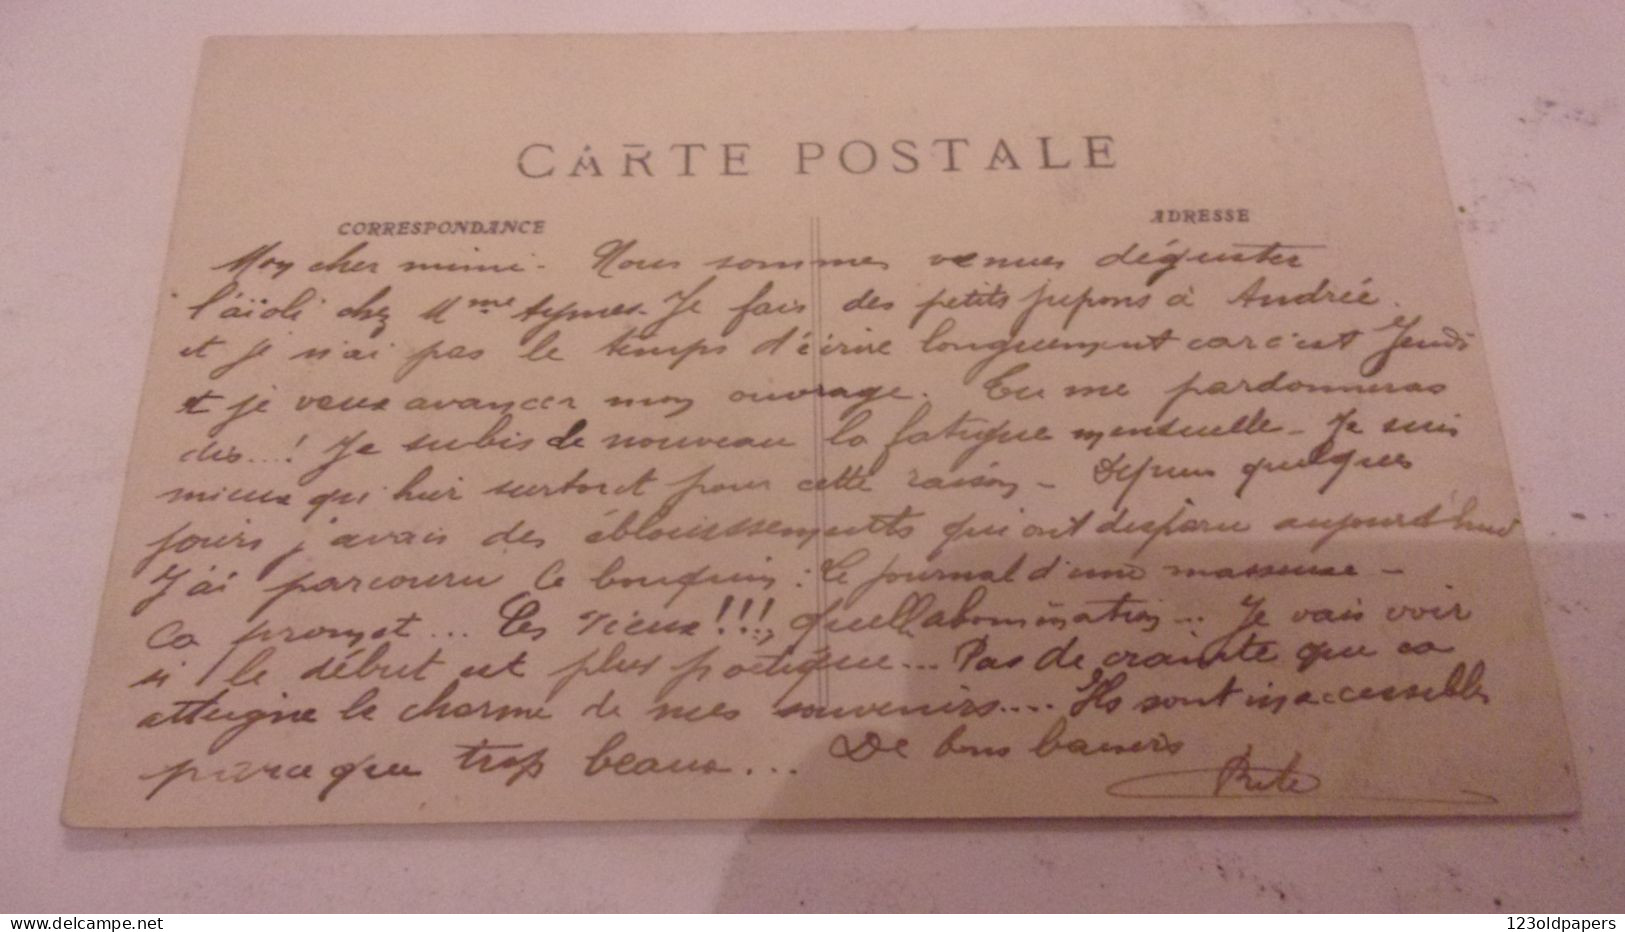 CARTE POSTALE
CORRESPONDANCE
ADRESSE
Mon cher mimi. Nous sommes venues déguster
l'aïoli chez Mme Aymes. Je fais des petits jupons à Andrée.
et je n'ai pas le temps d'écrire longuement car c'est Jeudi
et je veux avancer mon ouvrage. Tu me pardonneras
dis...! Je subis de nouveau la fatigue mensuelle - Je suis
mieux qu'hier surtout pour cette raison - Depuis quelques
jours j'avais des éblouissements qui ont disparu aujourd'hui
J'ai parcouru le bouquin : le journal d'une masseuse -
Ca promet... Les vieux!!!, quelle abomination... Je vais voir
si le début est plus poétique... Pas de crainte que ca
atteigne le charme de mes souvenirs.... Ils sont inaccessibles
parce que trop beaux... De bons baisers
123oldpapers